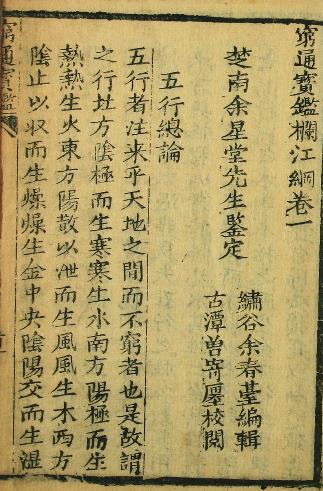 窮通寶鑑欄江綱卷一
楚南余星堂先生鑒定
繡谷余春臺編輯
古潭曾寄㕓校閱
五行總論
五行者注來乎天地之間而不窮者也是故謂
之行北方陰極而生寒寒生水南方陽極而生
熱熱生火東方陽散以泄而生風風生木西方
陰止以収而生燥燥生金中央陰陽交而生溼
窮通寶鑑